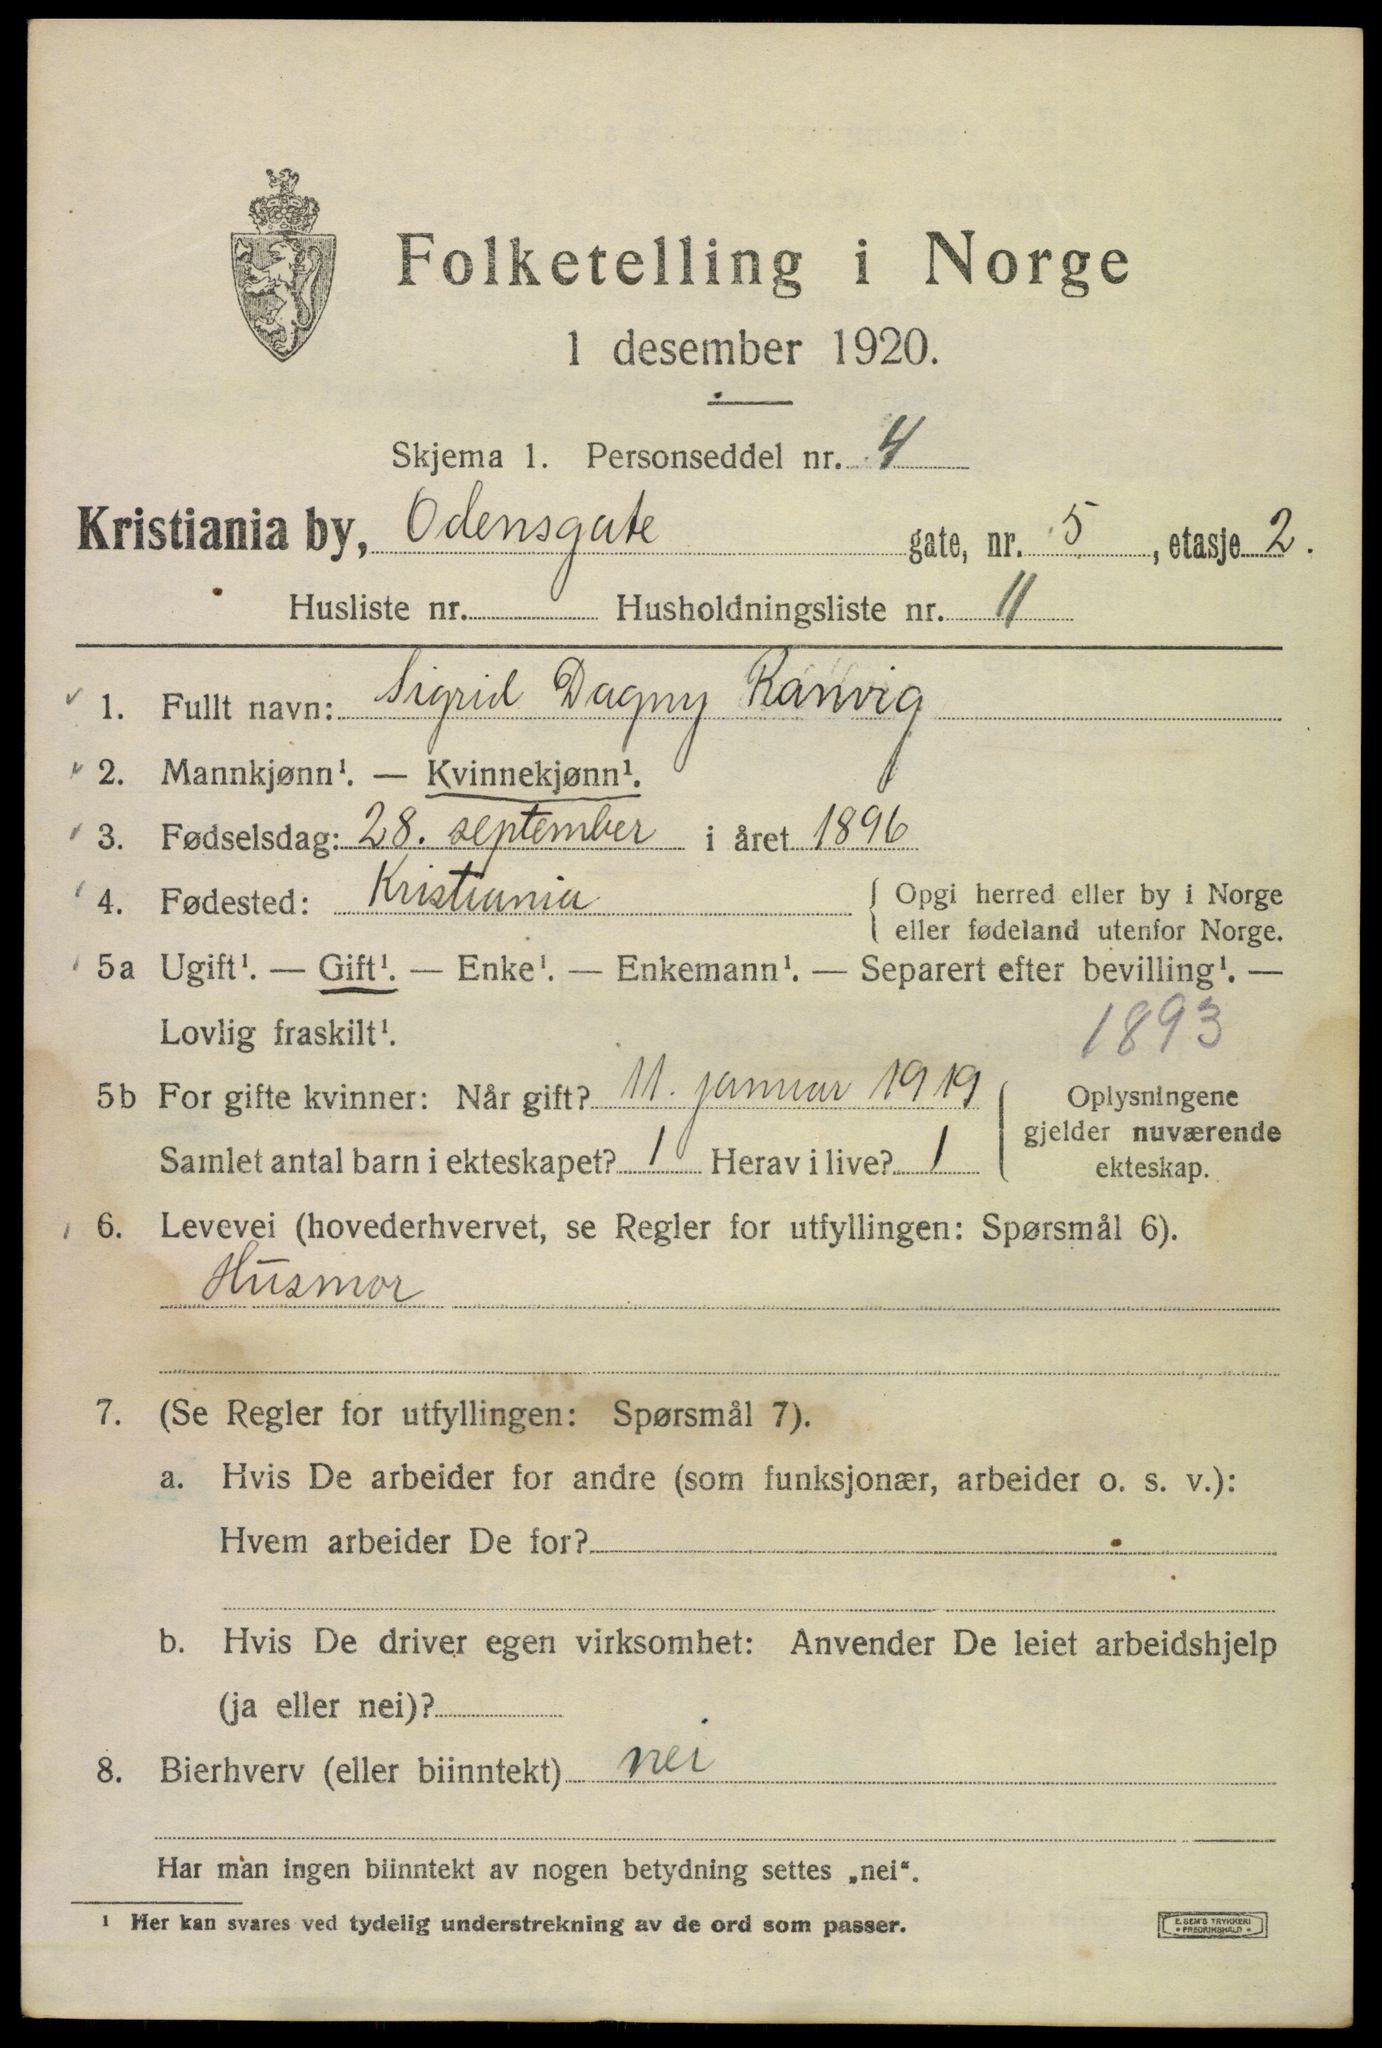 Folketelling i Norge
1 desember 1920.
Skjema 1. Personseddel nr. 4
Kristiania by, Odensgate gate, nr. 5, etasje 2.
Husliste nr. Husholdningsliste nr. 11
1. Fullt navn: Sigrid Dagny Ranvig
2. Mannkjønn¹. — Kvinnekjønn¹.
3. Fødselsdag: 28. september i året 1896
4. Fødested: Kristiania { Opgi herred eller by i Norge
eller fødeland utenfor Norge.
5a Ugift¹. — Gift¹. — Enke¹. — Enkemann¹. — Separert efter bevilling¹. —
Lovlig fraskilt¹. 1893
5b For gifte kvinner: Når gift? 11. januar 1919 { Oplysningene
gjelder nuværende
Samlet antal barn i ekteskapet? 1 Herav i live? 1 ekteskap.
6. Levevei (hovederhvervet, se Regler for utfyllingen: Spørsmål 6).
Husmor
7. (Se Regler for utfyllingen: Spørsmål 7).
a. Hvis De arbeider for andre (som funksjonær, arbeider o. s. v.):
Hvem arbeider De for?
b. Hvis De driver egen virksomhet: Anvender De leiet arbeidshjelp
(ja eller nei)?
8. Bierhverv (eller biinntekt) nei
Har man ingen biinntekt av nogen betydning settes „nei“.
¹ Her kan svares ved tydelig understrekning av de ord som passer.
E. SEM'S TRYKKERI
• FREDRIKSHALD •